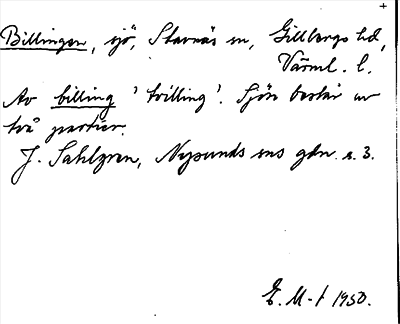 Billingen, sjö, Stavnäs sn, Gillbergs hd,
Värml. l.
Av billing 'tvilling'. Sjön består av
två partier.
J. Sahlgren, Nysunds sns gdn. s. 3.
E. M-t 1950.